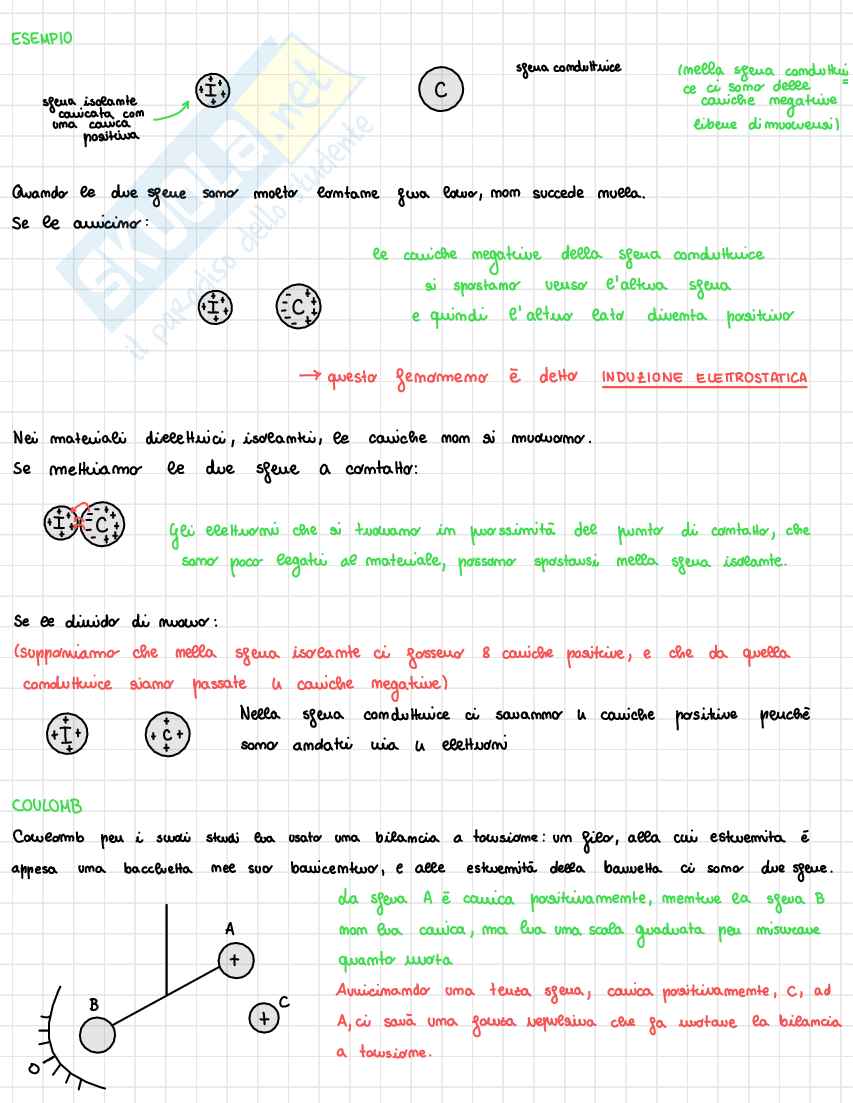 ESEMPIO
sfera isolante
caricata con
una carica
positiva
I
C
sfera conduttrice
(nella sfera conduttri
ce ci sono delle
cariche negative
libere di muoversi)
Quando le due sfere sono molto lontane fra loro, non succede nulla.
Se le avvicino:
le cariche negative della sfera conduttrice
si spostano verso l'altra sfera
e quindi l'altro lato diventa positivo
I
C
→ questo fenomeno è detto INDUZIONE ELETTROSTATICA
Nei materiali dielettrici, isolanti, le cariche non si muovono.
Se mettiamo le due sfere a contatto:
I
C
Gli elettroni che si trovano in prossimità del punto di contatto, che
sono poco legati al materiale, possono spostarsi nella sfera isolante.
Se le divido di nuovo:
(supponiamo che nella sfera isolante ci fossero 8 cariche positive, e che da quella
conduttrice siano passate 4 cariche negative)
I
C
Nella sfera conduttrice ci saranno 4 cariche positive perchè
sono andati via 4 elettroni
COULOMB
Coulomb per i suoi studi ha usato una bilancia a torsione: un filo, alla cui estremità è
appesa una bacchetta nel suo baricentro, e alle estremità della barretta ci sono due sfere.
La sfera A è carica positivamente, mentre la sfera B
non ha carica, ma ha una scala graduata per misurare
quanto ruota
Avvicinando una terza sfera, carica positivamente, C, ad
A, ci sarà una forza repulsiva che fa ruotare la bilancia
a torsione.
A
+
B
C
+
0
SKUOLA.net
il paradiso dello studente